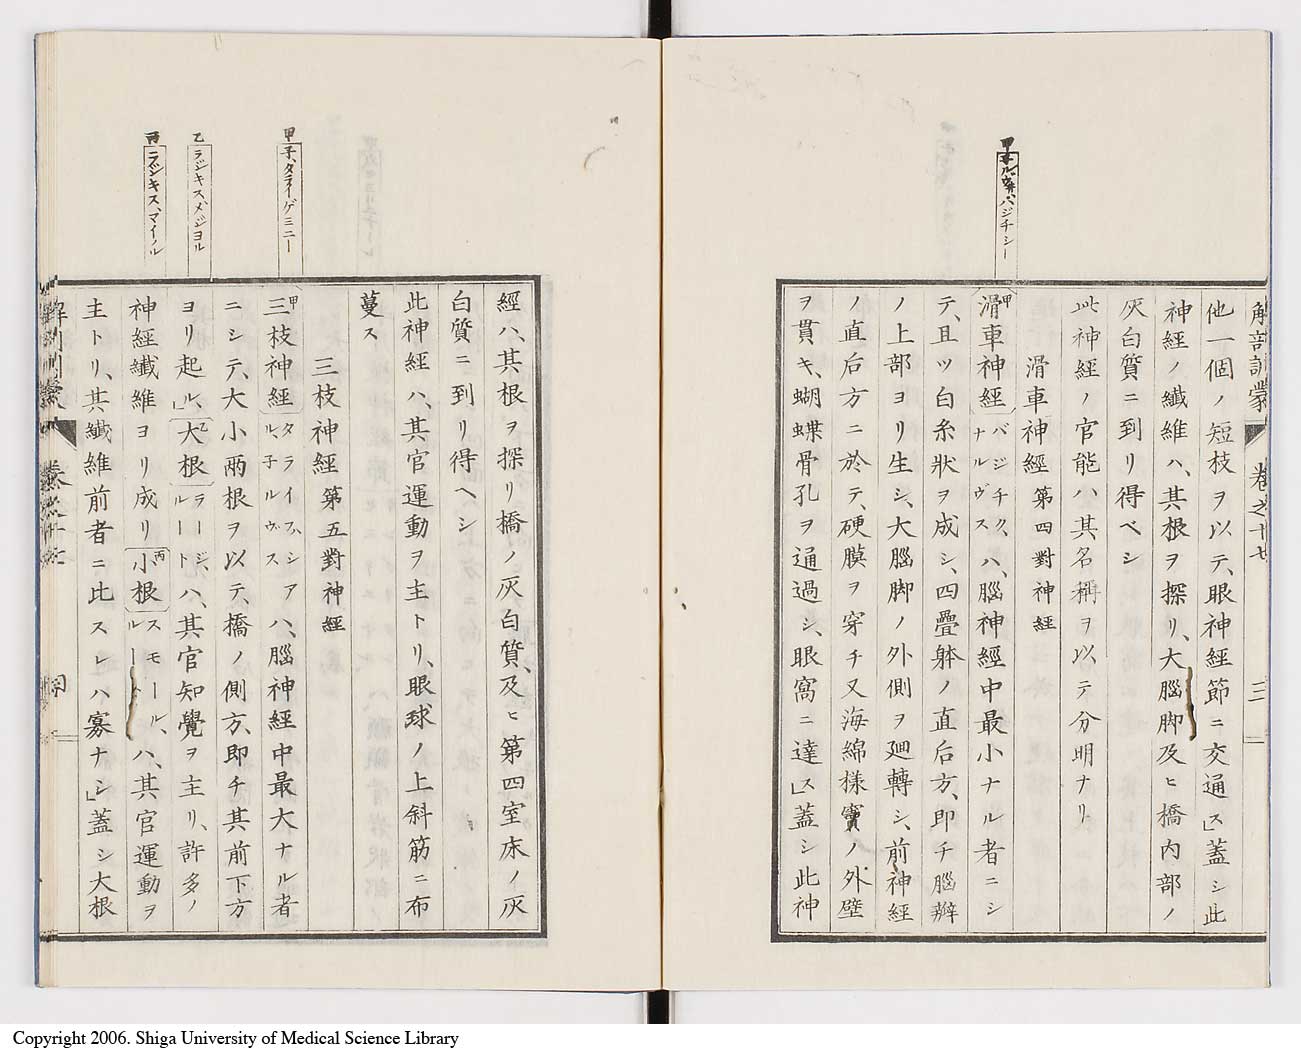 解剖訓蒙 卷之十七 三
他一個ノ短枝ヲ以テ、眼神經節ニ交通ス」蓋シ此
神經ノ纖維ハ、其根ヲ探リ、大腦脚及ヒ橋内部ノ
灰白質ニ到リ得ベシ
此神經ノ官能ハ其名稱ヲ以テ分明ナリ
滑車神經 第四對神經
甲滑車神經バジチク、ナルヴスハ、腦神經中最小ナル者ニシ
テ、且ツ白糸狀ヲ成シ、四疊躰ノ直后方、即チ腦辦
ノ上部ヨリ生シ、大腦脚ノ外側ヲ廻轉シ、前神經
ノ直后方ニ於テ、硬膜ヲ穿チ又海綿樣竇ノ外壁
ヲ貫キ、蝴蝶骨孔ヲ通過シ、眼窩ニ達ス」蓋シ此神
經ハ、其根ヲ探リ橋ノ灰白質、及ヒ第四室床ノ灰
白質ニ到リ得ヘシ
此神經ハ、其官運動ヲ主トリ、眼球ノ上斜筋ニ布
蔓ス
三枝神經 第五對神經
甲三枝神經タライフ、シアル、子ルヴスハ、腦神經中最大ナル者
ニシテ、大小兩根ヲ以テ、橋ノ側方、即チ其前下方
ヨリ起ル、」乙大根ラージ、ルートハ、其官知覺ヲ主リ、許多ノ
神經纖維ヨリ成リ丙小根スモール、ルートハ、其官運動ヲ
主トリ、其纖維前者ニ比スレハ寡ナシ」蓋シ大根
甲子、タライゲミニー
乙ラジキス、メジヨル
丙ラジキス、マイノル
Copyright 2006. Shiga University of Medical Science Library